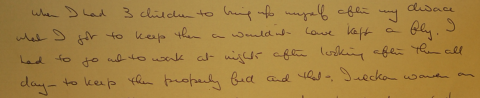 when I had 3 children to bring up myself after my divorce
what I got to keep them on wouldn't have kept a fly. I
had to go out to work at nights after looking after them all
day - to keep them properly fed and that. I reckon women on